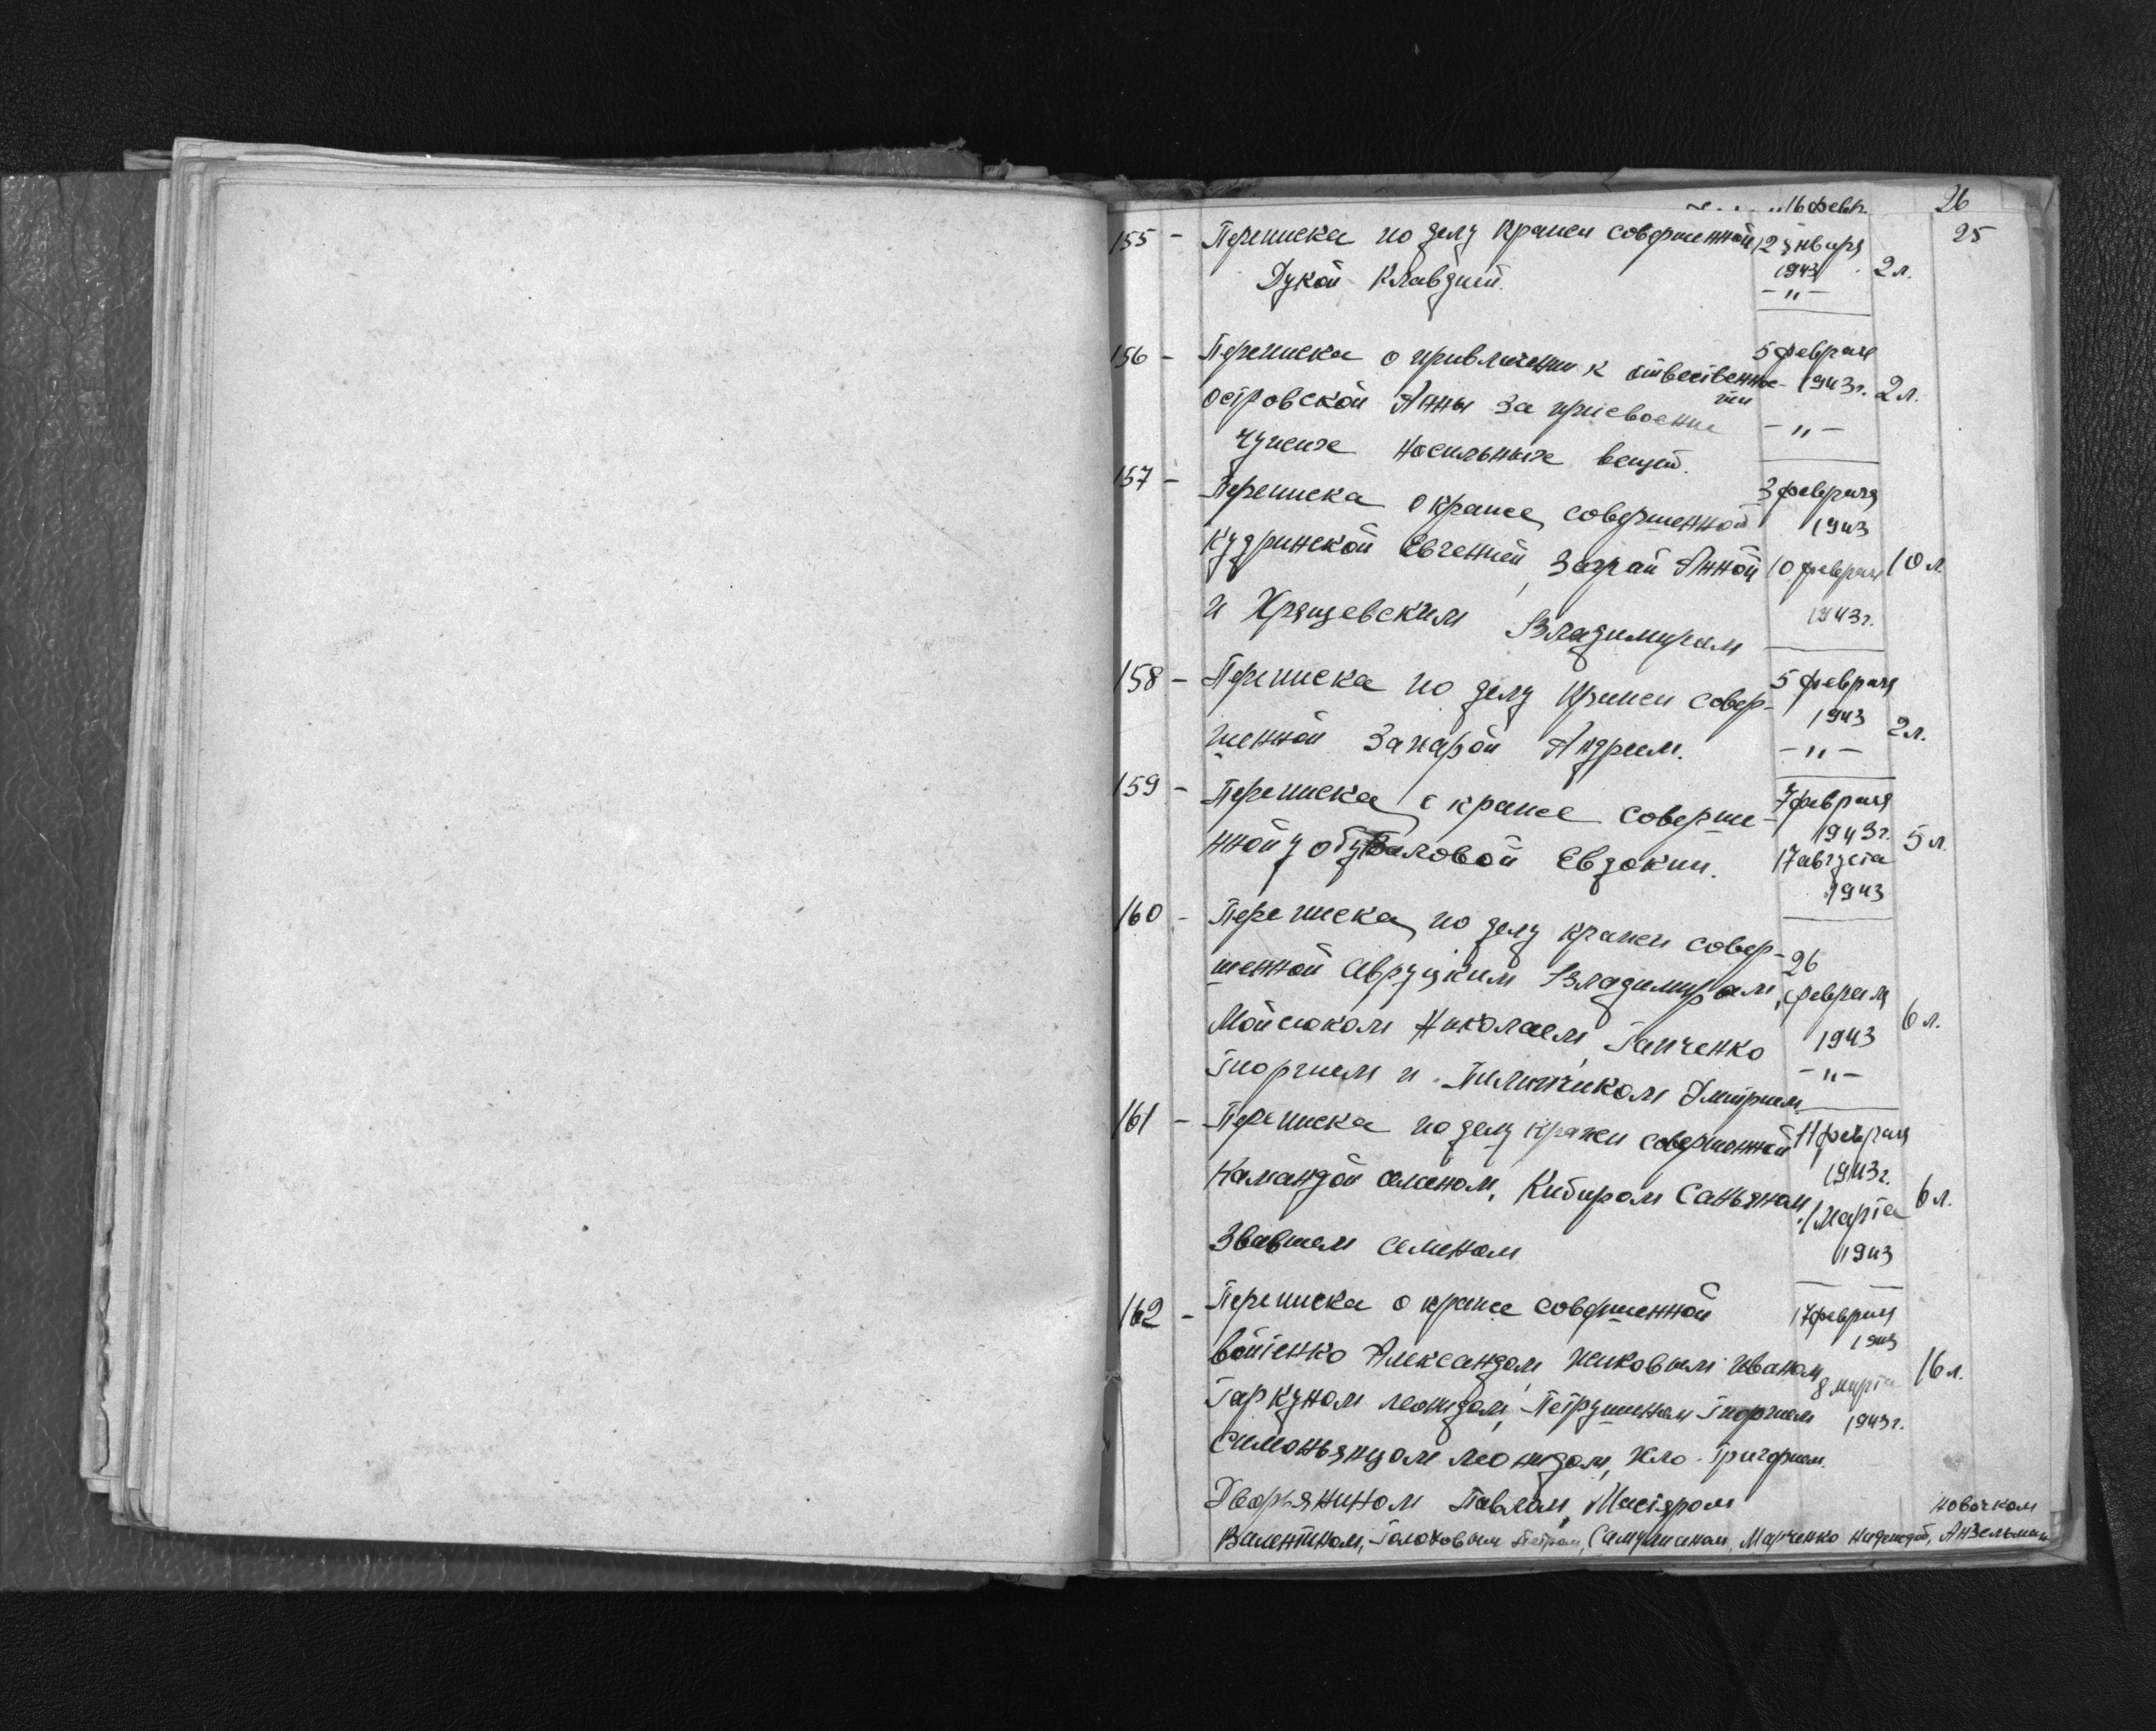 16 февр. 26
155 - Переписка по делу кражи совершенной 12 января 25
1943 2 л.
Дукой Клавдией. - " -
156 - Переписка о привлечении к ответственно- 5 февраля
сти 1943 г. 2 л.
Островской Анны за присвоение - " -
чужих носильных вещей.
157 - Переписка о краже совершенной 3 февраля
1943
Кудринской Евгенией, Заграй Анной 10 февраля 10 л.
и Хрящевским Владимиром 1943 г.
158 - Переписка по делу кражи совер- 5 февраля
1943 2 л.
шенной Захарой Андреем. - " -
159 - Переписка о краже соверше- 7 февраля
1943 г. 5 л.
нной у Евдокии. 17 августа
1943
160 - Переписка по делу кражи совер- 26
шенной Авруцким Владимиром, февраля
1943 6 л.
Мойсюком Николаем, Ганченко - " -
Георгием и Пилипчиком Дмитрием
161 - Переписка по делу кражи совершенной 11 февраля
1943 г.
Командой Кибиром Саньяном, 1 марта 6 л.
1943
Семеном
162 - Переписка о краже совершенной 17 февраля
1943
Войтенко Александом, Чиковым Иваном, 8 марта 16 л.
Гаркуном Леонидом, Петрушиным Георгием 1943 г.
Симоньянцом Леонидом, Кло Григорием.
Дворьянином Павлом, Мастяром
Валентином, Голоховым Петром, Марченко Надеждой, Анзельмом